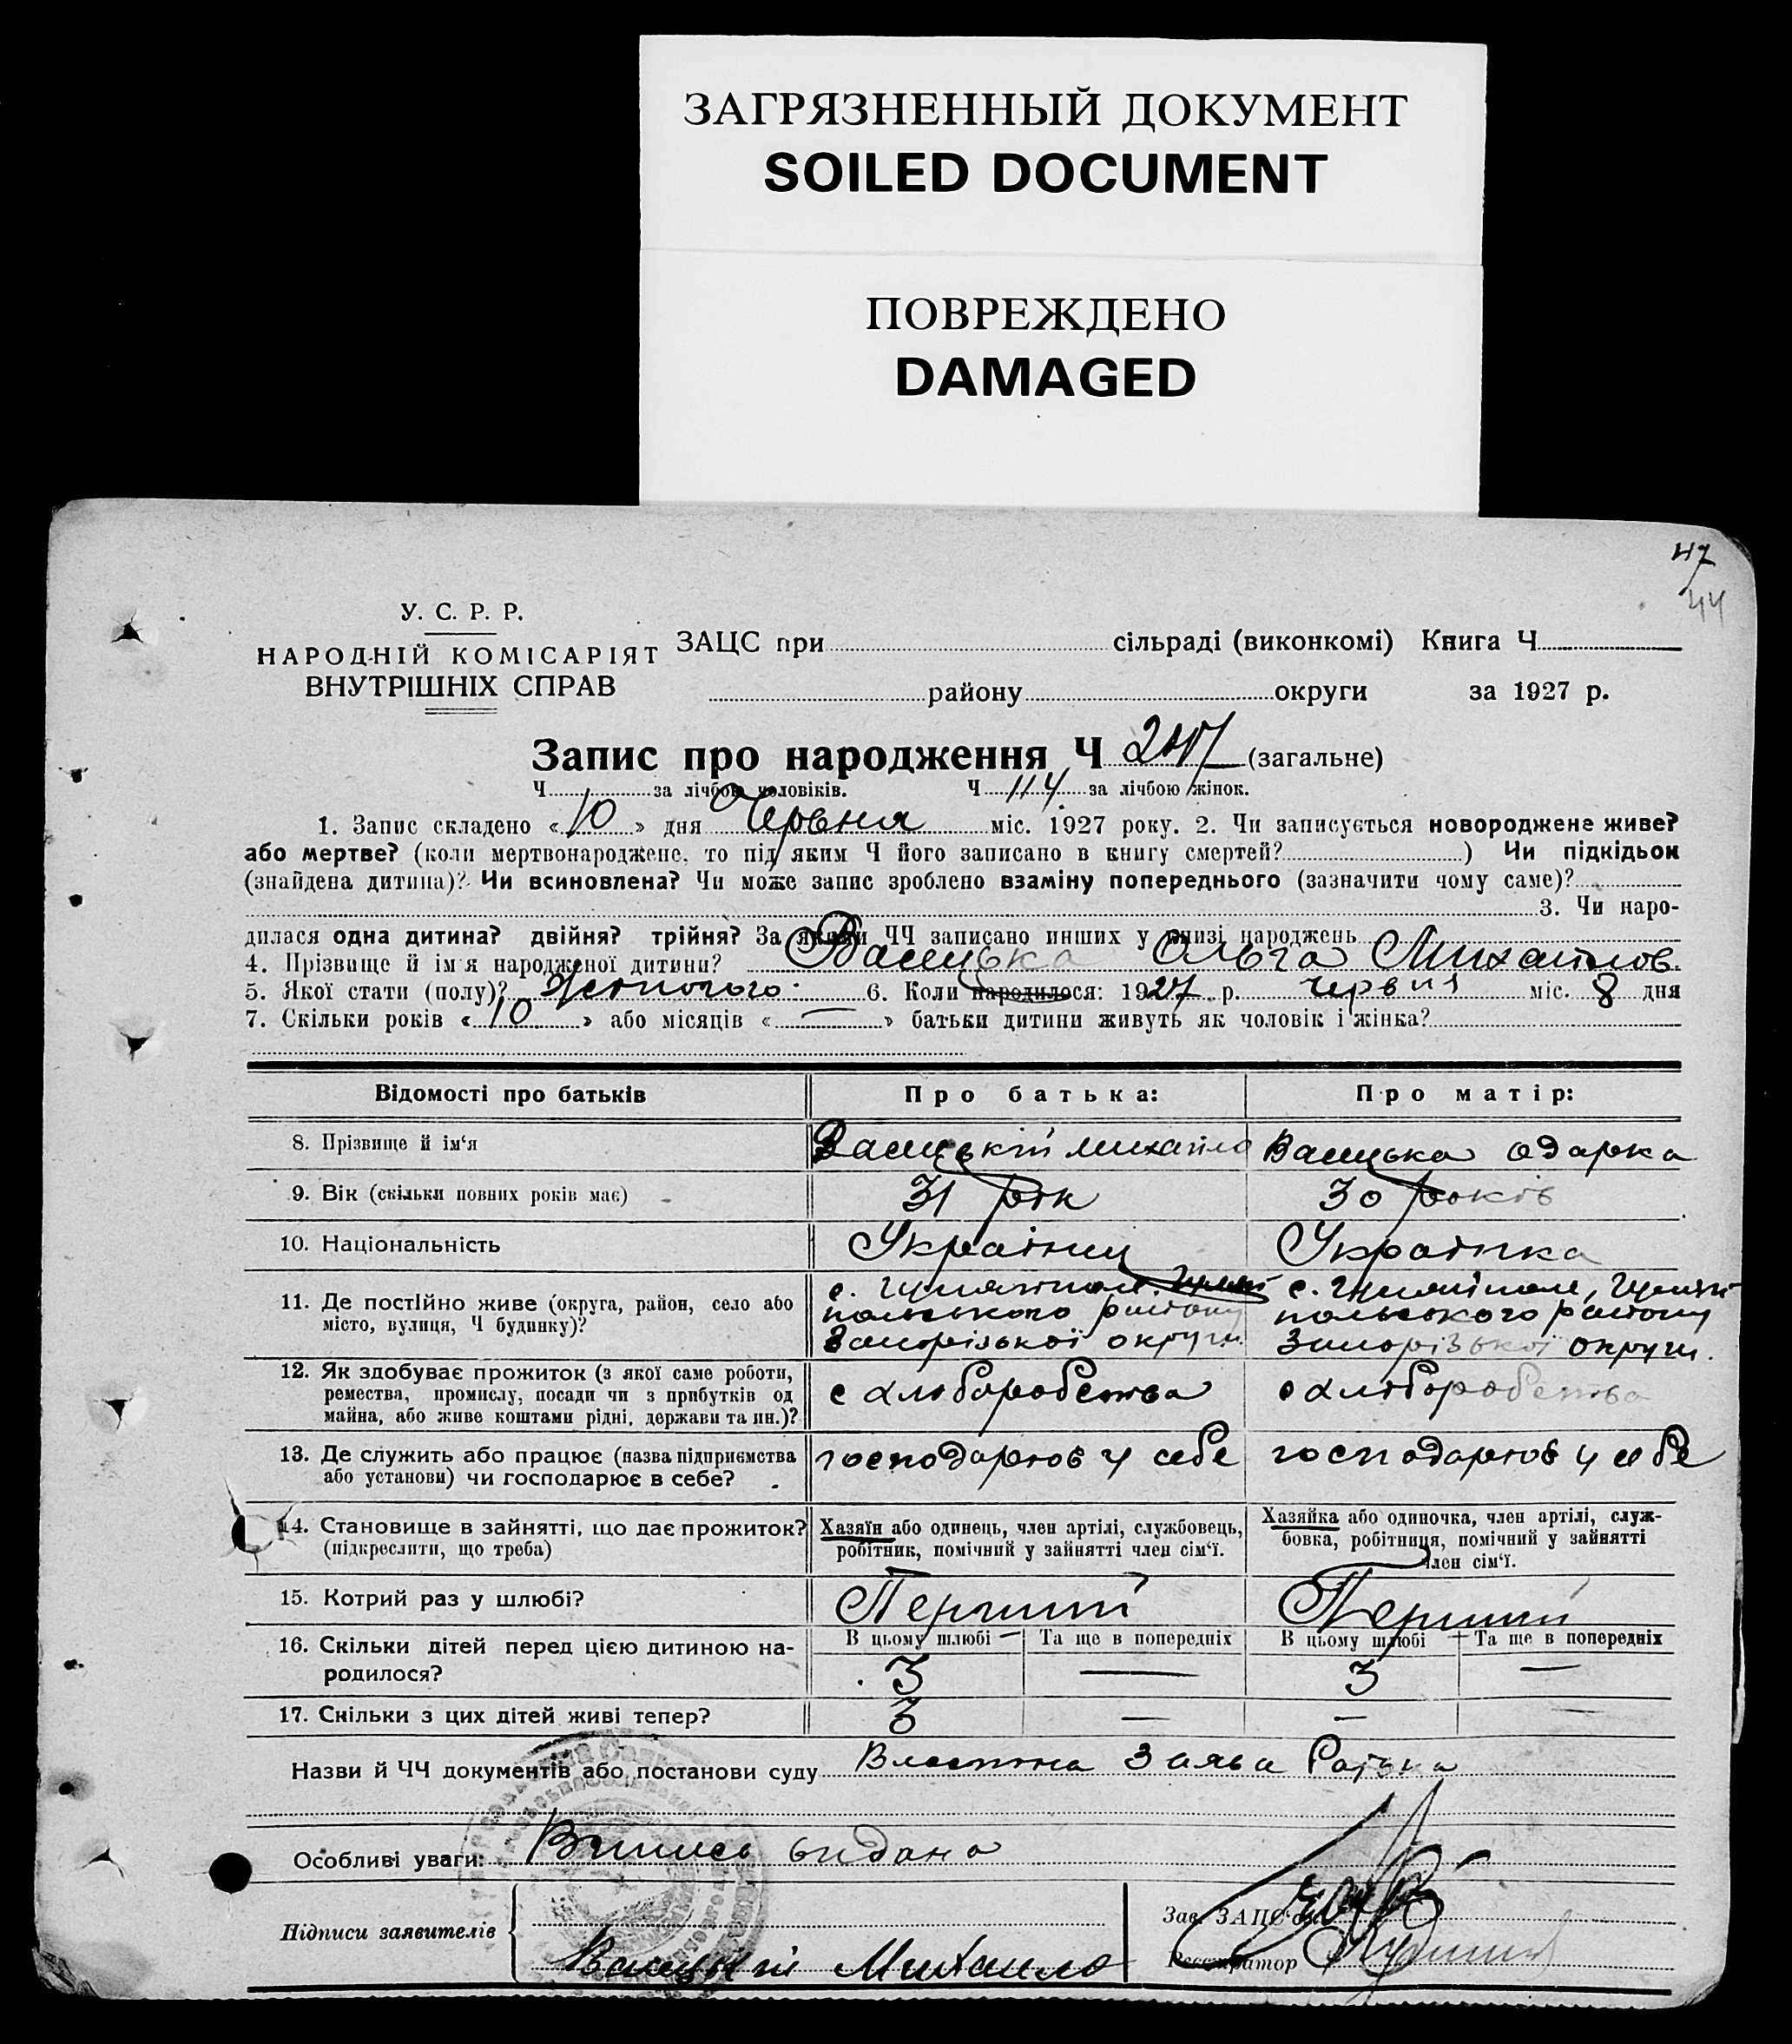 ЗАГРЯЗНЕННЫЙ ДОКУМЕНТ
SOILED DOCUMENT
ПОВРЕЖДЕНО
DAMAGED
47
44
У. С. Р. Р.
НАРОДНІЙ КОМІСАРІЯТ
ВНУТРІШНІХ СПРАВ
ЗАЦС при сільраді (виконкомі) Книга Ч
району округи за 1927 р.
Запис про народження Ч (загальне)
Ч за лічбою чоловіків. Ч 114 за лічбою жінок.
1. Запис складено « 10 » дня Червня міс. 1927 року. 2. Чи записується новороджене живе?
або мертве? (коли мертвонароджене, то під яким Ч його записано в книгу смертей? ) Чи підкідьок
(знайдена дитина)? Чи всиновлена? Чи може запис зроблено взаміну попереднього (зазначити чому саме)?
3. Чи наро-
дилася одна дитина? двійня? трійня? За якими ЧЧ записано инших у книзі народжень
4. Прізвище й ім'я народженої дитини? Ольга Михайлов.
5. Якої стати (полу)? Жіночого 6. Коли народилося: 1927 р. червня міс. 8 дня
7. Скільки років « 10 » або місяців « — » батьки дитини живуть як чоловік і жінка?
Відомості про батьків Про батька: Про матір:
8. Прізвище й ім'я Михайло Одарка
9. Вік (скільки повних років має) 31 рік 30 років
10. Національність Українець Українка
11. Де постійно живе (округа, район, село або
місто, вулиця, Ч будинку)?
с. Гуляйполе, с. Гуляйполе, Гуляй-
польського району польського району
Запорізької округи Запорізької округи.
12. Як здобуває прожиток (з якої саме роботи,
ремества, промислу, посади чи з прибутків од
майна, або живе коштами рідні, держави та ин.)?
с хліборобства с хліборобства
13. Де служить або працює (назва підприємства
або установи) чи господарює в себе?
господарюв у себе господарюв у себе
14. Становище в зайнятті, що дає прожиток?
(підкреслити, що треба)
Хазяїн або одинець, член артілі, службовець,
робітник, помічний у зайнятті член сім'ї.
Хазяйка або одиночка, член артілі, служ-
бовка, робітниця, помічний у зайнятті
член сім'ї.
15. Котрий раз у шлюбі? Перший Перший
16. Скільки дітей перед цією дитиною на-
родилося?
В цьому шлюбі Та ще в попередніх В цьому шлюбі Та ще в попередніх
3 — 3 —
17. Скільки з цих дітей живі тепер? 3 — — —
Назви й ЧЧ документів або постанови суду Властна Заява Батька
Особливі уваги: Впись видана
Підписи заявителів
Михаило
Зав. ЗАЦС'ом
Реєстратор